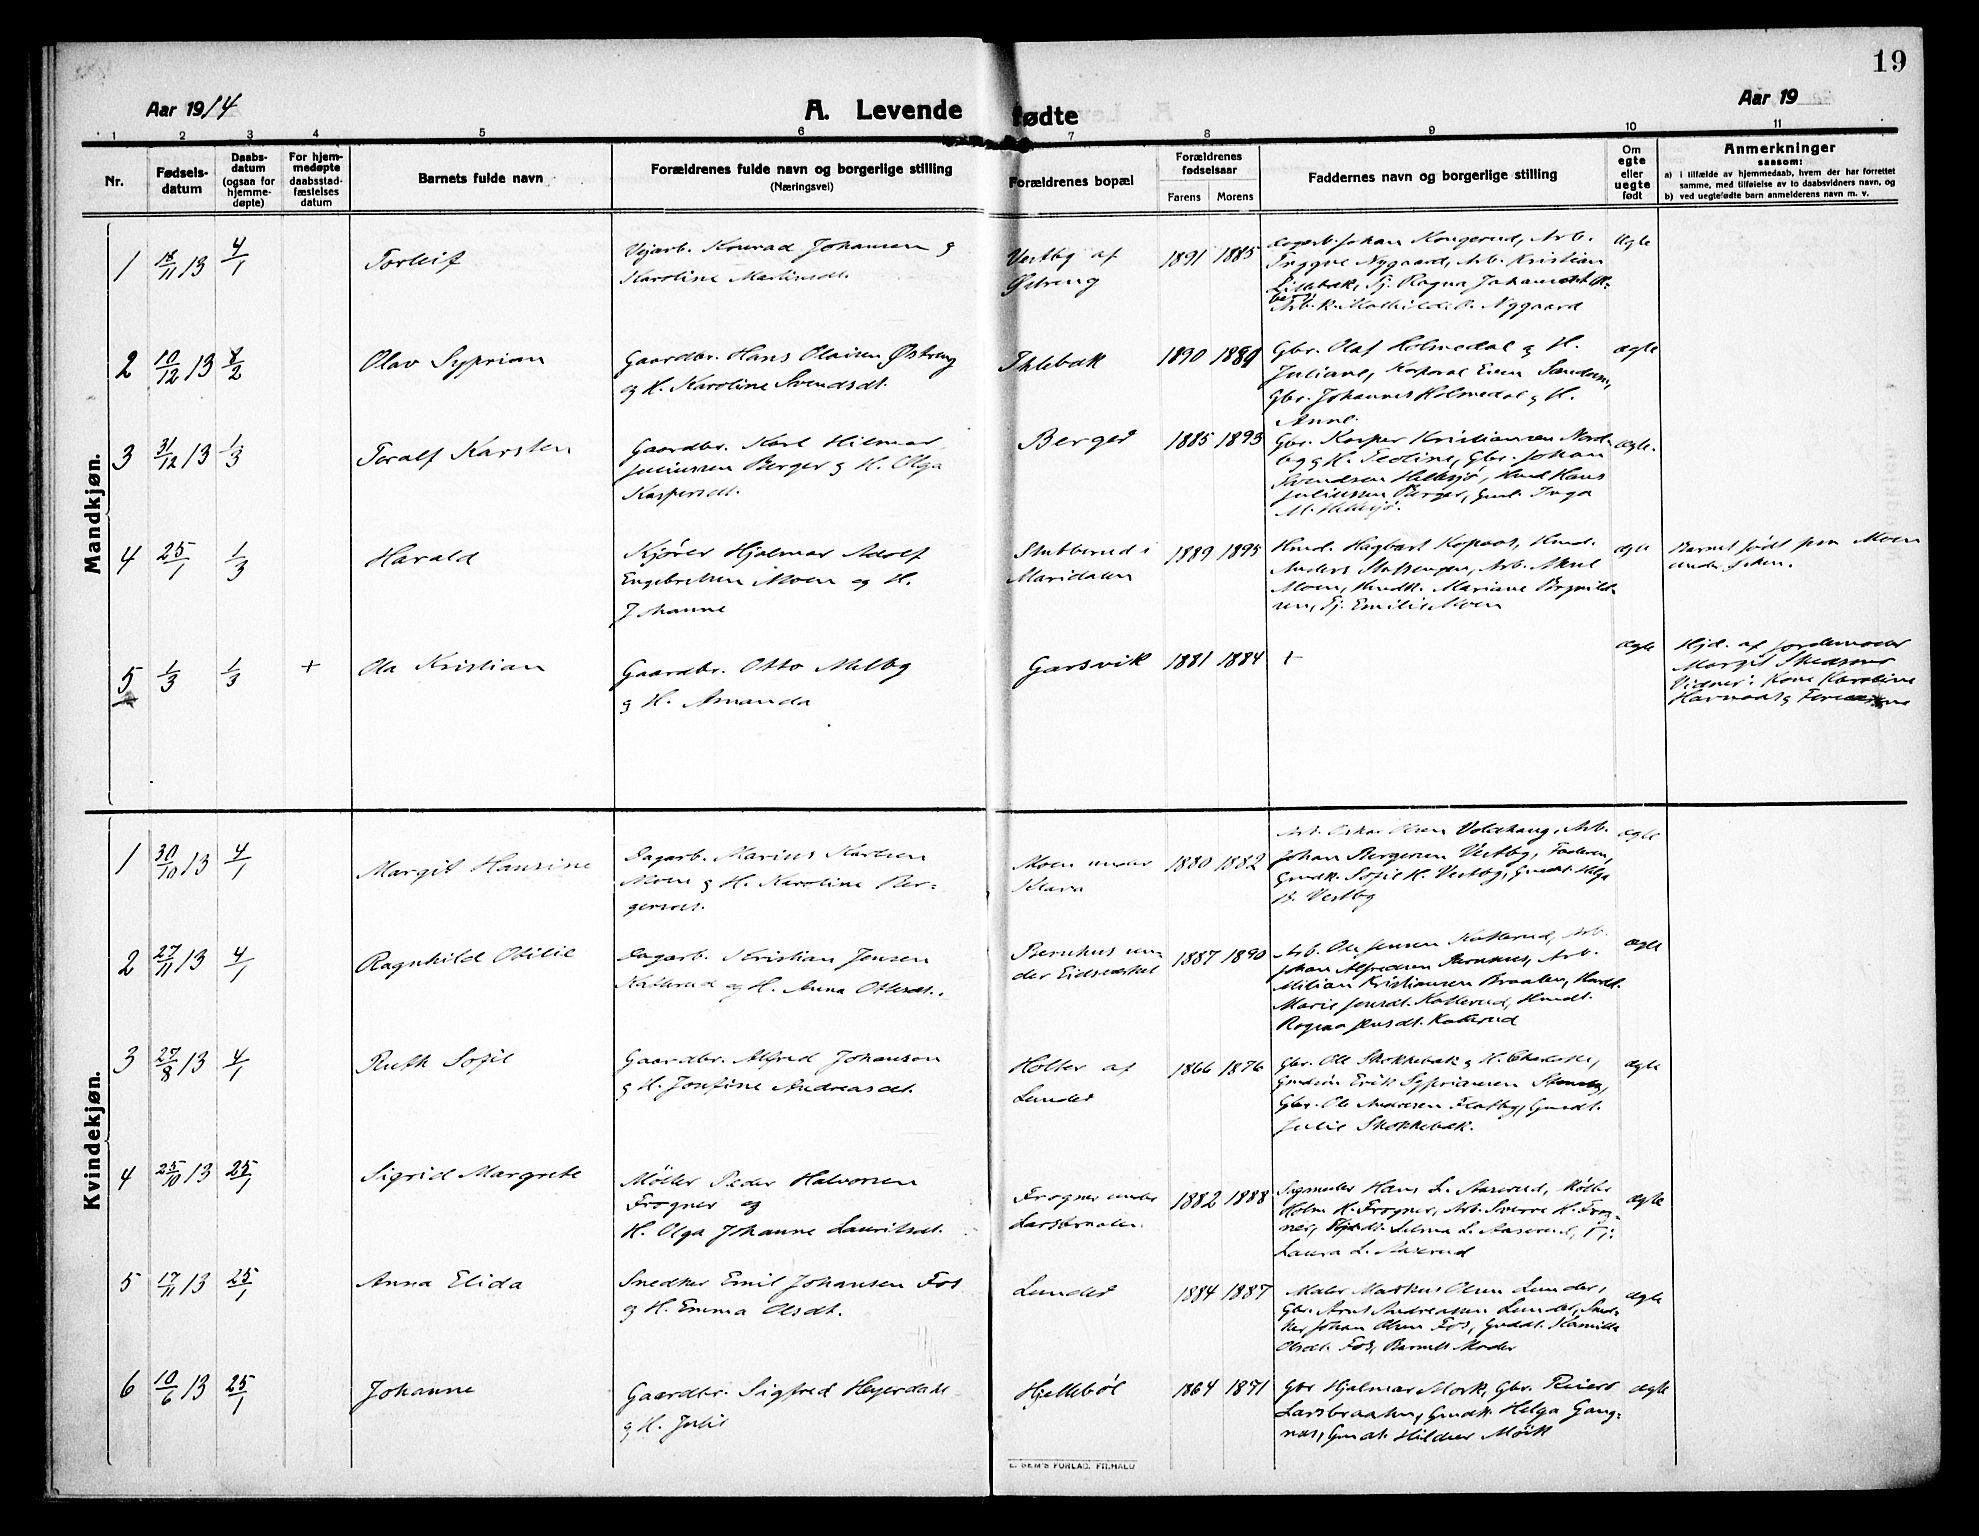 19
Aar 1914
A. Levende fødte
Aar 19
1 2 3 4 5 6 7 8 9 10 11
Nr.
Fødsels-
datum
Daabs-
datum
(ogsaa for
hjemme-
døpte)
For hjem-
medøpte
daabsstad-
fæstelses
datum
Barnets fulde navn
Forældrenes fulde navn og borgerlige stilling
(Næringsvei)
Forældrenes bopæl
Forældrenes
fødselsaar
Farens Morens
Faddernes navn og borgerlige stilling
Om
egte
eller
uegte
født
Anmerkninger
saasom:
a) i tilfælde av hjemmedaab, hvem der har forrettet
samme, med tilføielse av to daabsvidners navn, og
b) ved uegtefødte barn anmelderens navn m. v.
Mandkjøn.
1 18/11 13 4/1 Torleif
Vejarb. Konrad Johansen og
Karoline Martinsdt.
Vestby af
Østreng
1891 1885
Dagarb. Johan Kongerud, Arb.
Trygve Nygaard, Arb. Kristian
Lillebæk, Pj. Ragna
Arb.k. Mathilde Nygaard
ægte
2 10/12 13 8/2 Olav Syprian
Gaardbr. Hans Olaisen Østreng
og H. Karoline Svendsdt.
Ihlebæk
1890 1889
Gbr. Olaf Holmedal og H.
Juliane, Korporal Einar
Gbr. Johannes Holmedal og H.
Anne.
ægte
3 31/12 13 1/3 Toralf Karsten
Gaardbr. Karl Hilmar
Juliussen Berger og H. Olga
Kaspersdt.
Berger
1885 1893
Gbr. Kasper Kristiansen Nord-
by og H. Teoline, Gbr. Johan
Svendsen Hellesjø, Und Hans
Juliussen Berger, Gmd. Inga
M. Hellesjø.
ægte.
4 25/1 1/3 Harald
Kjører Hjalmar Adolf
Engebretsen Moen og H.
Johanne
Stubberud i
Maridalen
1889 1895
Hmd. Hagbart Kopaas, Hmd.
Anders Arb. Aksel
Moen, Hmdk. Mariane
Pj. Emilie Moen
ægte
Barnet født paa Moen
5 1/3 1/3 + Ola Kristian
Gaardbr. Otto Melby
og H. Amanda
Garsvik
1881 1884 +
ægte
Hjd. af jordemoder
Margit
Vidner: Kone Karoline
Kvindekjøn.
1 30/10 13 4/1 Margit Hansine
Dagarb. Marius Karlsen
Moen og H. Karoline Ber-
gersdt.
Moen under
Klara
1880 1882
Arb. Oskar Olsen Voldhaug, Arb.
Johan Bergersen Vestby, Faderen,
Gmdk. Sofie H. Vestby, Gmdt. Helga
B. Vestby
ægte
2 27/11 13 4/1 Ragnhild Otilie
Dagarb. Kristian Jensen
Katterud og H. Anna Ottersdt.
Bernhus un-
der Eidsværket
1887 1890
Arb. Ole Jensen Katterud, Arb.
Johan Alfredsen Bernhus, Arb.
Milian Kristiansen Braaten,
Marie Jensdt. Katterud, Hmdt.
Ragna Jensdt. Katterud
ægte
3 27/8 13 4/1 Ruth Sofie
Gaardbr. Alfred Johanson
og H. Josefine Andreasdt.
Holter af
Lundes
1866 1876
Gbr. Ole Skokkebæk og H.
Gmdsøn Erik Syprianssen
Gbr. Ole Andersen Flatby, Gmdt.
Julie Skokkebæk.
ægte
4 25/10 13 25/1 Sigrid Margrete
Møller Peder Halvorsen
Frogner og
H. Olga Johanne Lauritsdt.
Frogner under
Larsbraaten
1882 1888
Sagmester Hans L. Aaserud, Møller
Holm H. Frogner, Arb. Sverre H. Frog-
ner, Selma L. Aaserud, Pj.
Laura L. Aaserud
ægte
5 17/11 13 25/1 Anna Elida
Snedker Emil Johansen Fos
og H. Emma Olsdt.
Lundes
1884 1887
Maler Markus Olsen Lundes,
Gbr. Arnt Andreassen Lundes, Sned-
ker Johan Olsen Fos, Gmddt. Kamilla
Olsdt. Fos, Barnets Moder
ægte
6 10/6 13 25/1 Johanne
Gaardbr. Sigfred Heyerdahl
og H. Julie
Hjellebøl
1864 1871
Gbr Hjalmar Mørk, Gbr.
Larsbraaten, Gmdk. Helga Gang-
næs, Gmdt. Hildur Mørk
ægte
E. SEM'S FORLAG. FR.HALD